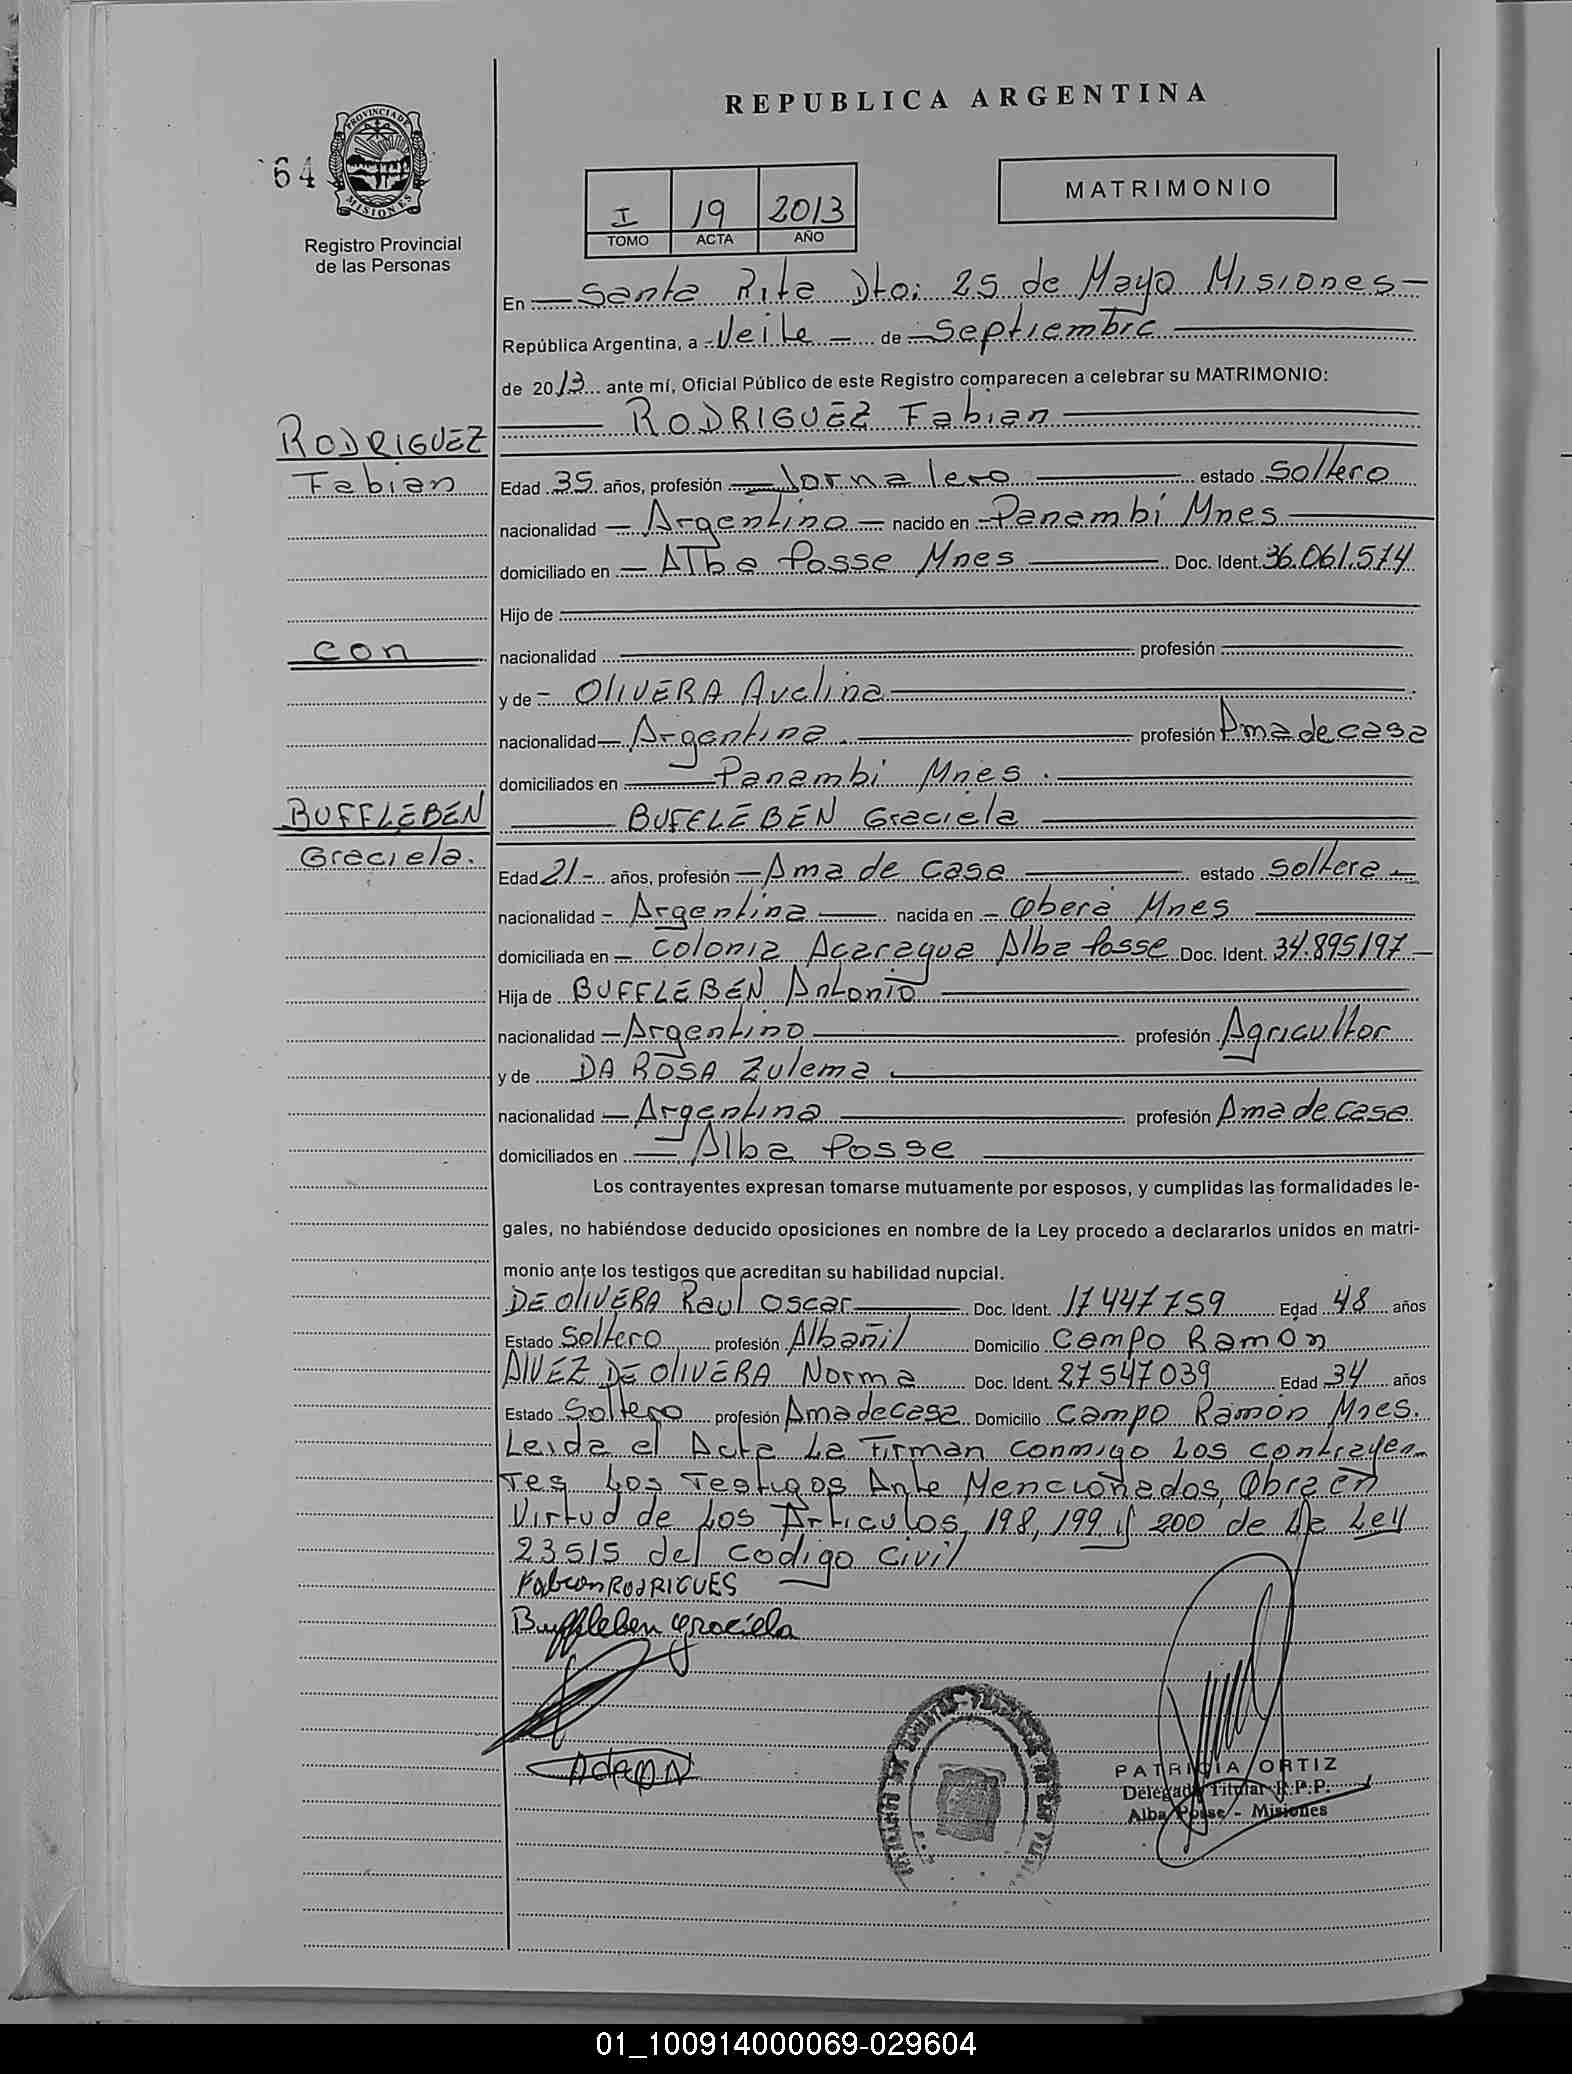 REPUBLICA ARGENTINA
64
PROVINCIA DE
MISIONES
Registro Provincial
de las Personas
I 19 2013
TOMO ACTA AÑO
MATRIMONIO
En Santa Rita Dto: 25 de Mayo Misiones
República Argentina, a Veite de Septiembre
de 2013 ante mí, Oficial Público de este Registro comparecen a celebrar su MATRIMONIO:
RODRIGUEZ Fabian
RODRIGUEZ
Fabian
Edad 35 años, profesión Jornalero estado Soltero
nacionalidad Argentino nacido en Panambí Mnes
domiciliado en Alba Posse Mnes Doc. Ident. 36.061.574
Hijo de
con
nacionalidad profesión
y de OlIVERA Avelina
nacionalidad Argentina profesión Ama de casa
domiciliados en Panambi Mnes.
BUFFLEBEN
Graciela.
BUFFLEBEN Graciela
Edad 21 años, profesión Ama de casa estado soltera
nacionalidad Argentina nacida en Oberá Mnes
domiciliada en Colonia Acaragua Alba Posse Doc. Ident. 34.895197
Hija de BUFFLEBEN Antonio
nacionalidad Argentino profesión Agricultor
y de DA ROSA Zulema
nacionalidad Argentina profesión Ama de casa
domiciliados en Alba Posse
Los contrayentes expresan tomarse mutuamente por esposos, y cumplidas las formalidades le-
gales, no habiéndose deducido oposiciones en nombre de la Ley procedo a declararlos unidos en matri-
monio ante los testigos que acreditan su habilidad nupcial.
DE OlIVERA Raul Oscar Doc. Ident. 17447759 Edad 48 años
Estado Soltero profesión Albañil Domicilio Campo Ramón
AlVEZ DE OlIVERA Norma Doc. Ident. 27547039 Edad 34 años
Estado Soltero profesión Ama de casa Domicilio Campo Ramón Mnes.
Leida el Acta La Firman conmigo Los contrayen-
tes Los Testigos Ante Mencionados, Obra en
Virtud de Los Articulos, 198, 199 y 200 de La Ley
23515 del Codigo Civil
Fabian RODRIGUES
Buffleben Graciela
PATRICIA ORTIZ
Delegada Titular R.P.P.
Alba Posse - Misiones
01_100914000069-029604